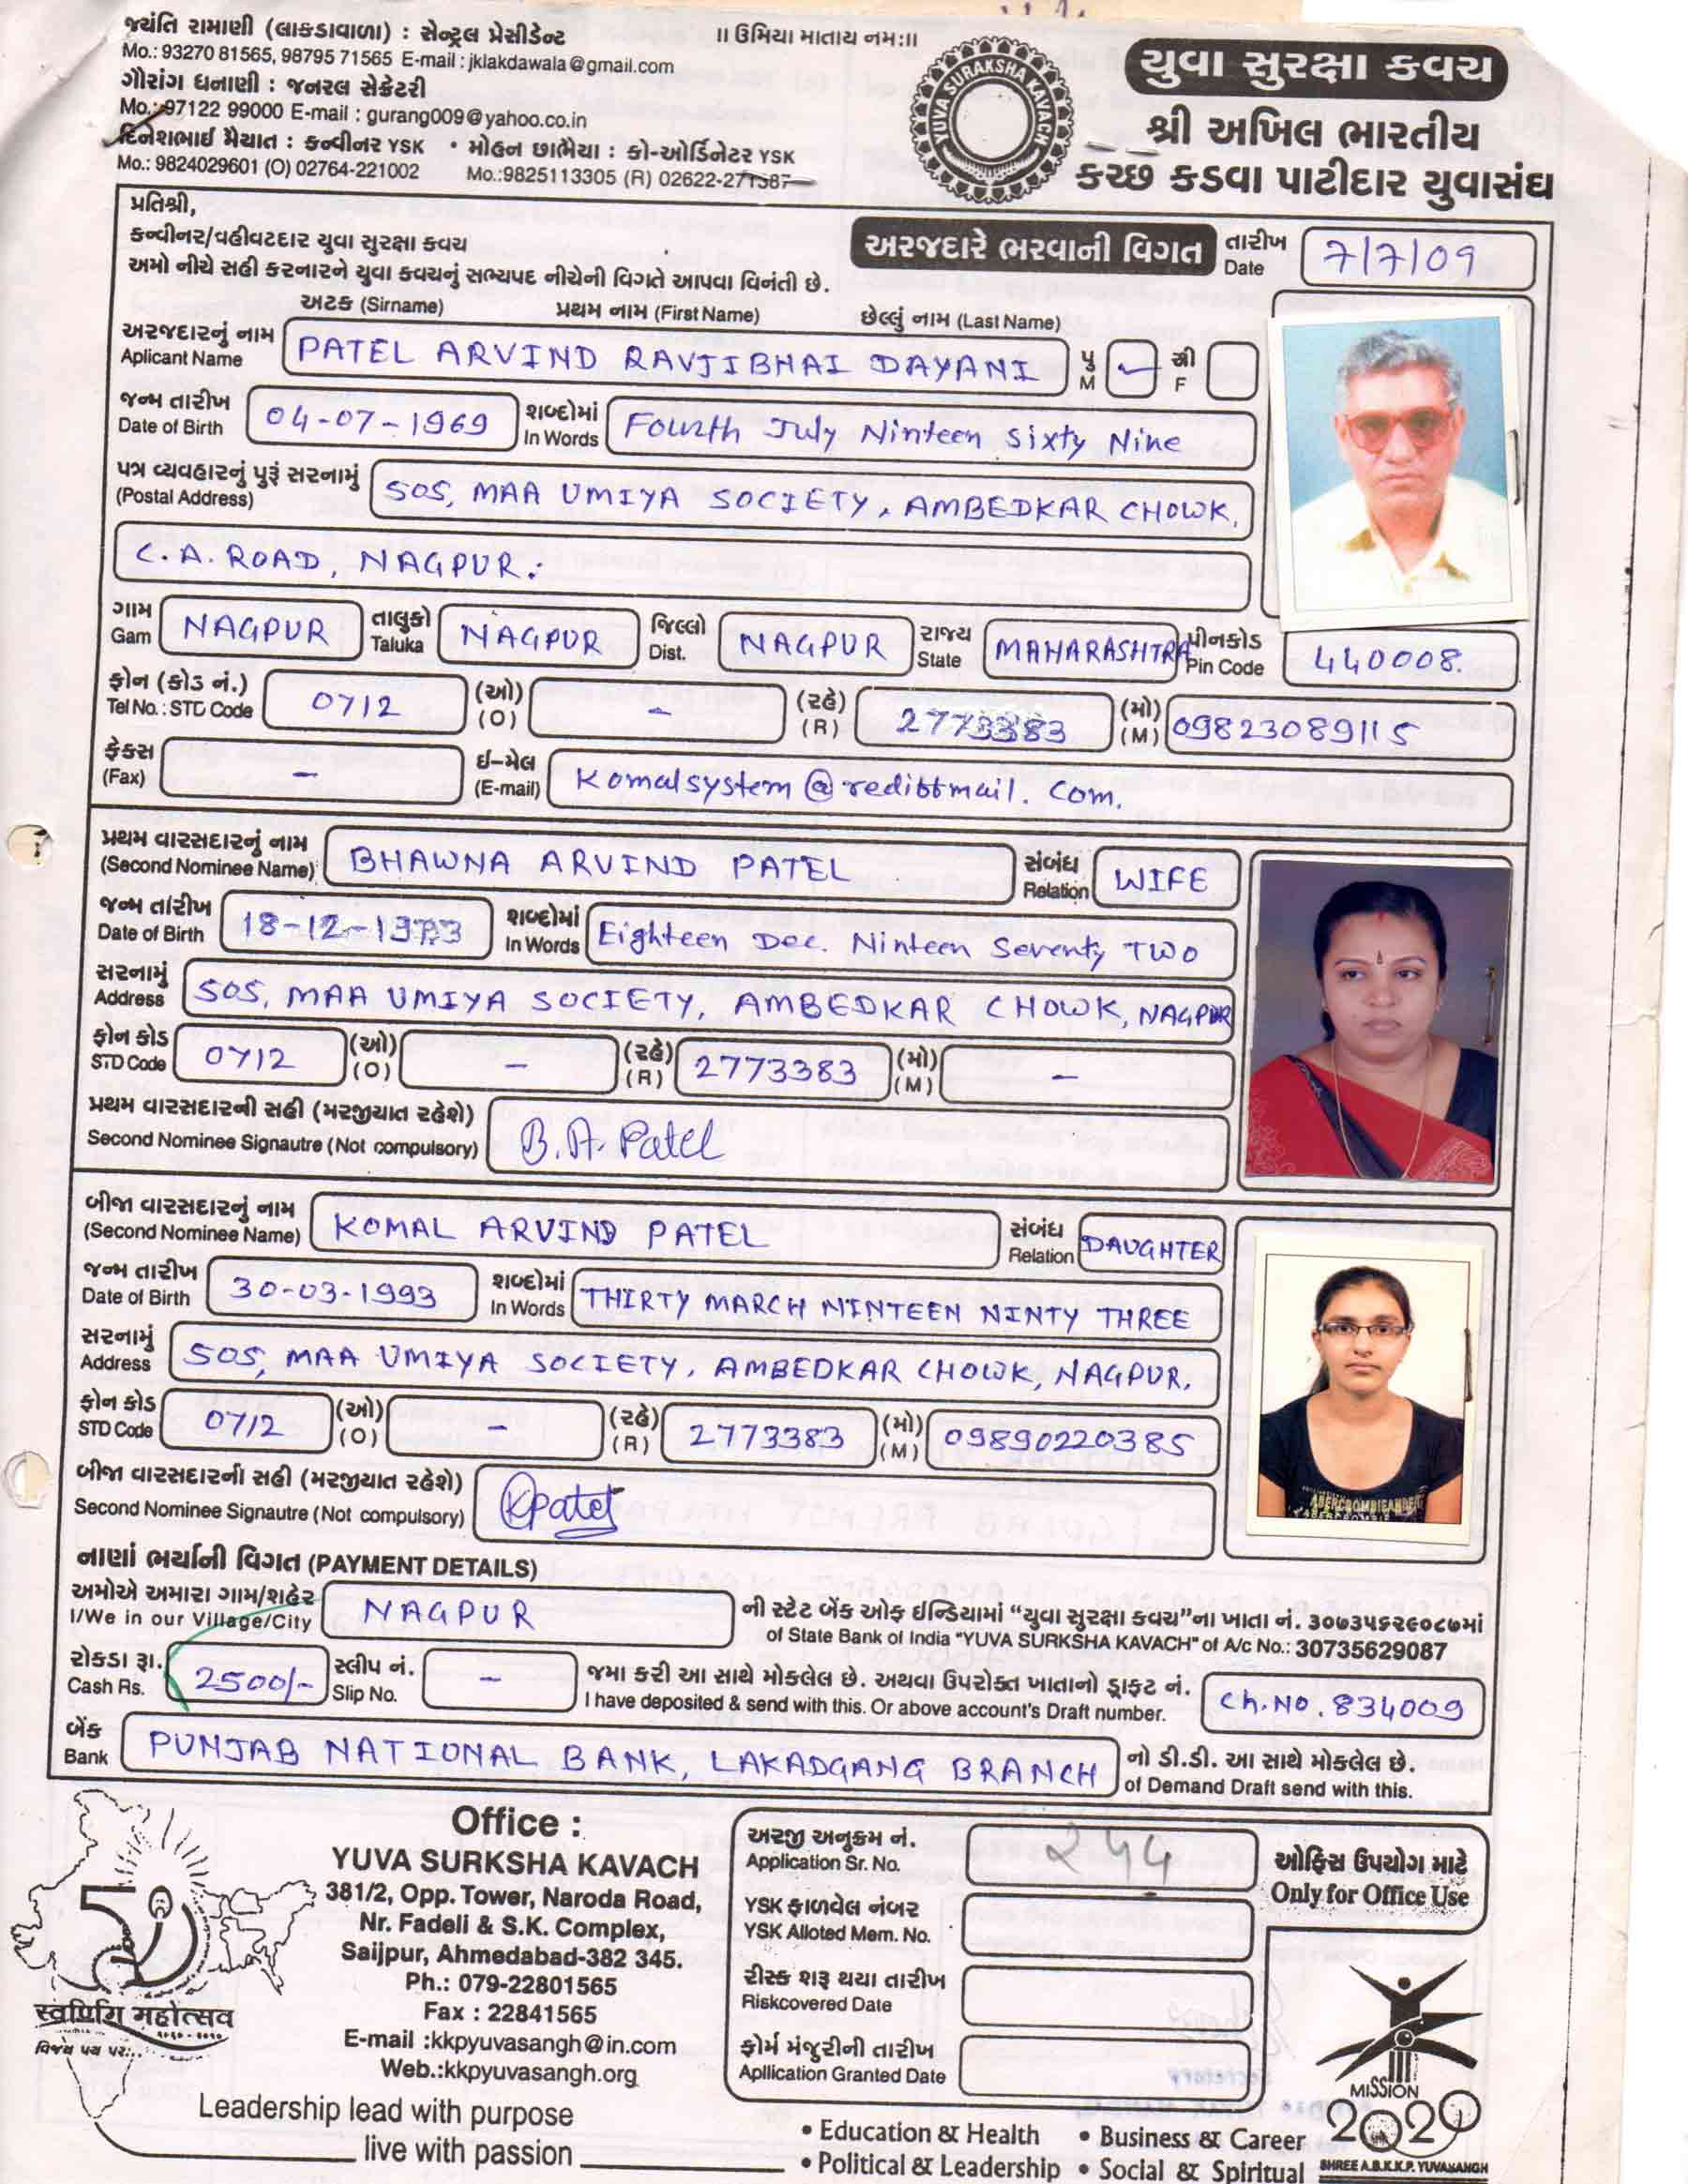 જયંતિ રામાણી (લાકડાવાળા) : સેન્ટ્રલ પ્રેસીડેન્ટ
Mo.: 93270 81565, 98795 71565 E-mail : jklakdawala@gmail.com
ગૌરાંગ ધનાણી : જનરલ સેક્રેટરી
Mo.: 97122 99000 E-mail : gurang009@yahoo.co.in
દિનેશભાઈ મૈયાત : કન્વીનર YSK • મોહન છાભૈયા : કો-ઓર્ડિનેટર YSK
Mo.: 9824029601 (O) 02764-221002 Mo.:9825113305 (R) 02622-271387
॥ ઉમિયા માતાય નમઃ॥
YUVA SURAKSHA KAVACH
યુવા સુરક્ષા કવચ
શ્રી અખિલ ભારતીય
કચ્છ કડવા પાટીદાર યુવાસંઘ
પ્રતિશ્રી,
કન્વીનર/વહીવટદાર યુવા સુરક્ષા કવચ
અમો નીચે સહી કરનારને યુવા કવચનું સભ્યપદ નીચેની વિગતે આપવા વિનંતી છે.
અરજદારે ભરવાની વિગત
તારીખ
Date 7/7/09
અટક (Sirname) પ્રથમ નામ (First Name) છેલ્લું નામ (Last Name)
અરજદારનું નામ
Aplicant Name PATEL ARVIND RAVJIBHAI DAYANI પુ M સ્ત્રી F
જન્મ તારીખ
Date of Birth 04-07-1969 શબ્દોમાં In Words Fourth July Ninteen Sixty Nine
પત્ર વ્યવહારનું પુરૂં સરનામું
(Postal Address) 505, MAA UMIYA SOCIETY, AMBEDKAR CHOWK,
C.A. ROAD, NAGPUR.
ગામ Gam NAGPUR તાલુકો Taluka NAGPUR જિલ્લો Dist. NAGPUR રાજ્ય State MAHARASHTRA પીનકોડ Pin Code 440008.
ફોન (કોડ નં.)
Tel No. : STD Code 0712 (ઓ) (O) - (રહે) (R) 2773383 (મો) (M) 09823089115
ફેક્સ
(Fax) - ઈ-મેલ (E-mail) Komalsystem@rediffmail.com.
પ્રથમ વારસદારનું નામ
(Second Nominee Name) BHAWNA ARVIND PATEL સંબંધ Relation WIFE
જન્મ તારીખ
Date of Birth 18-12-1973 શબ્દોમાં In Words Eighteen Dec. Ninteen Seventy TWO
સરનામું
Address 505, MAA UMIYA SOCIETY, AMBEDKAR CHOWK, NAGPUR
ફોન કોડ
STD Code 0712 (ઓ) (O) - (રહે) (R) 2773383 (મો) (M) -
પ્રથમ વારસદારની સહી (મરજીયાત રહેશે)
Second Nominee Signautre (Not compulsory) B.A. Patel
બીજા વારસદારનું નામ
(Second Nominee Name) KOMAL ARVIND PATEL સંબંધ Relation DAUGHTER
જન્મ તારીખ
Date of Birth 30-03-1993 શબ્દોમાં In Words THIRTY MARCH NINTEEN NINTY THREE
સરનામું
Address 505, MAA UMIYA SOCIETY, AMBEDKAR CHOWK, NAGPUR.
ફોન કોડ
STD Code 0712 (ઓ) (O) - (રહે) (R) 2773383 (મો) (M) 09890220385
બીજા વારસદારની સહી (મરજીયાત રહેશે)
Second Nominee Signautre (Not compulsory) KPatel
નાણાં ભર્યાની વિગત (PAYMENT DETAILS)
અમોએ અમારા ગામ/શહેર NAGPUR ની સ્ટેટ બેંક ઓફ ઇન્ડિયામાં "યુવા સુરક્ષા કવચ"ના ખાતા નં. ૩૦૭૩૫૬૨૯૦૮૭માં
I/We in our Village/City of State Bank of India "YUVA SURKSHA KAVACH" of A/c No.: 30735629087
રોકડા રૂા.
Cash Rs. 2500/- સ્લીપ નં. Slip No. - જમા કરી આ સાથે મોકલેલ છે. અથવા ઉપરોક્ત ખાતાનો ડ્રાફ્ટ નં.
I have deposited & send with this. Or above account's Draft number. Ch.No. 834009
બેંક
Bank PUNJAB NATIONAL BANK, LAKADGANG BRANCH નો ડી.ડી. આ સાથે મોકલેલ છે.
of Demand Draft send with this.
Office :
YUVA SURKSHA KAVACH
381/2, Opp. Tower, Naroda Road,
Nr. Fadeli & S.K. Complex,
Saijpur, Ahmedabad-382 345.
Ph.: 079-22801565
Fax : 22841565
E-mail :kkpyuvasangh@in.com
Web.:kkpyuvasangh.org
50
महोत्सव
Leadership lead with purpose
live with passion
અરજી અનુક્રમ નં.
Application Sr. No. ૨૫૫
YSK ફાળવેલ નંબર
YSK Alloted Mem. No.
રીસ્ક શરૂ થયા તારીખ
Riskcovered Date
ફોર્મ મંજુરીની તારીખ
Apllication Granted Date
ઓફિસ ઉપયોગ માટે
Only for Office Use
MISSION
2020
SHREE A.B.K.K.P. YUVASANGH
• Education & Health • Business & Career
• Political & Leadership • Social & Spiritual